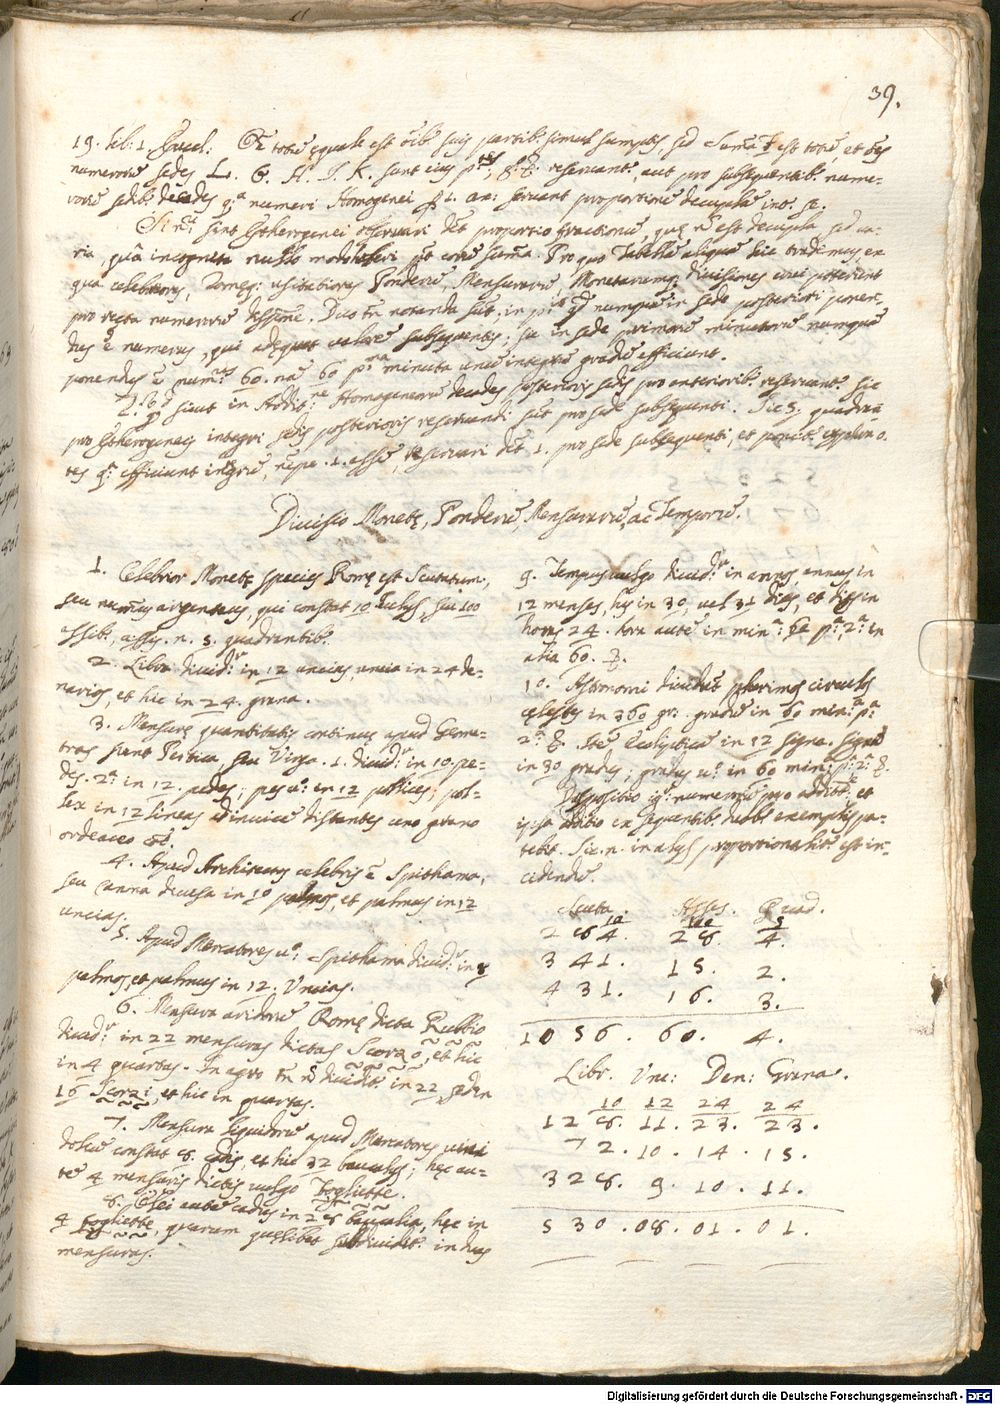 39.
19. lib: 1 Eucl: totũ ęquale est oĩb. suis partib. simul sumptis, sed Sum̃a est totũ, et oẽs
numerorũ sedes L. G. H. I. K. sunt eius reservant, aut pro subsequentib. nume-
rorũ sedib. decades numeri Homogenei servant proportionẽ decuplã int. se.
sint Etherogenei observari dẽt proportio fractionũ, quę nõ est decupla, sed va-
ria, quâ incognita nullo modo haberi põt eorũ sum̃a. Pro quo Tabellã aliquã hic trademus, ex
qua celebriores, usitatiores Ponderũ, Mensurarũ, Monetarumq; divisiones erui poterunt
pro recta numerorũ Duo tñ notanda sũt. in numquã in sede posteriori ponen-
dus ẽ numerus, qui adęquat valorẽ subsequentis; sic in sede primorũ minutorũ numquã
ponendus ẽ num. 60. nã 60 p.ma minuta unũ integrũ gradũ efficiunt.
2. sicut in Addit.ne Homogeneorũ decades posterioris sedis pro anteriorib. reservant. sic
pro Etherogeneis integri sedis posterioris reservandi sũt pro sede subsequenti. Sic 5. quadran-
tes efficiunt integrũ, nẽpe .1. assẽ, reservari dẽt 1. pro sede subsequenti, et
Divisio Monetę, Ponderũ, Mensurarũ, ac Temporũ.
1. Celebrior Monetę species Romę est Scutatum,
seu numus argenteus, qui constat 10 Iulijs, seu 100
assib., assis. n. 5. quadrantib.
2. Libra dividr. in 12 uncias, uncia in 24 de-
narios, et hic in 24. grana.
3. Mensurę quantitatis continuę apud Geome-
tras sunt Pertica, seu Virga. 1. dividr. in 10. pe-
des. 2.a in 12. pedes; pes u.o in 12 pollices; pol-
lex in 12 lineas ad invicẽ distantes uno grano
ordeaceo
4. Apud Architectos celebris ẽ Spithama,
seu Canna divisa in 10 palmos, et palmus in 12
uncias.
5. Apud Mercatores u.o Spithama dividr. in 8
palmos, et palmus in 12. Uncias.
6. Mensura aridorũ Romę dicta Rubbio
dividr. in 22 mensuras dictas Scorzo, et hic
in 4 quartas. In agro tñ nõ dividit. in 22 sed in
16 Scorzi, et hic in quartas.
7. Mensura liquidorũ apud Mercatores vini
doliũ constat 8. cadis, et hic 32 baucalijs; hęc au-
tẽ 4 mensuris dictis vulgo fogliette.
8. Olei autẽ cadus in 28 baucalia, hęc in
4 fogliette, quarum quęlibet subdividit. in duas
mensuras.
9. Tempus vulgo dividr. in annos, annus in
12 menses, hi in 30, vel 31 dies, et dies in
horas 24. hora autẽ in min.a p.a 2.a in
alia 60.
10. Astronomi dividũt plurimos circulos
cęlestes in 360 gr. gradũ in 60 min.a p.a
2.a Itẽ Eclipticã in 12 signa. signũ
in 30 gradus; gradus u.o in 60 min: p.a 2.a
Dispositio numerorũ pro addit.e et
ipsa additio ex sequentib. duob. exemplis pa-
tebit. Sic. n. in alijs proportionalit. est in-
cidendũ.
Scuta. Asses. Quad.
10 100 5
284. 28. 4.
341. 15. 2.
431. 16. 3.
1056. 60. 4.
Libr. Unc: Den: Grana.
10 12 24 24
128. 11. 23. 23.
72. 10. 14. 15.
328. 9. 10. 11.
530. 08. 01. 01.
Digitalisierung gefördert durch die Deutsche Forschungsgemeinschaft - DFG